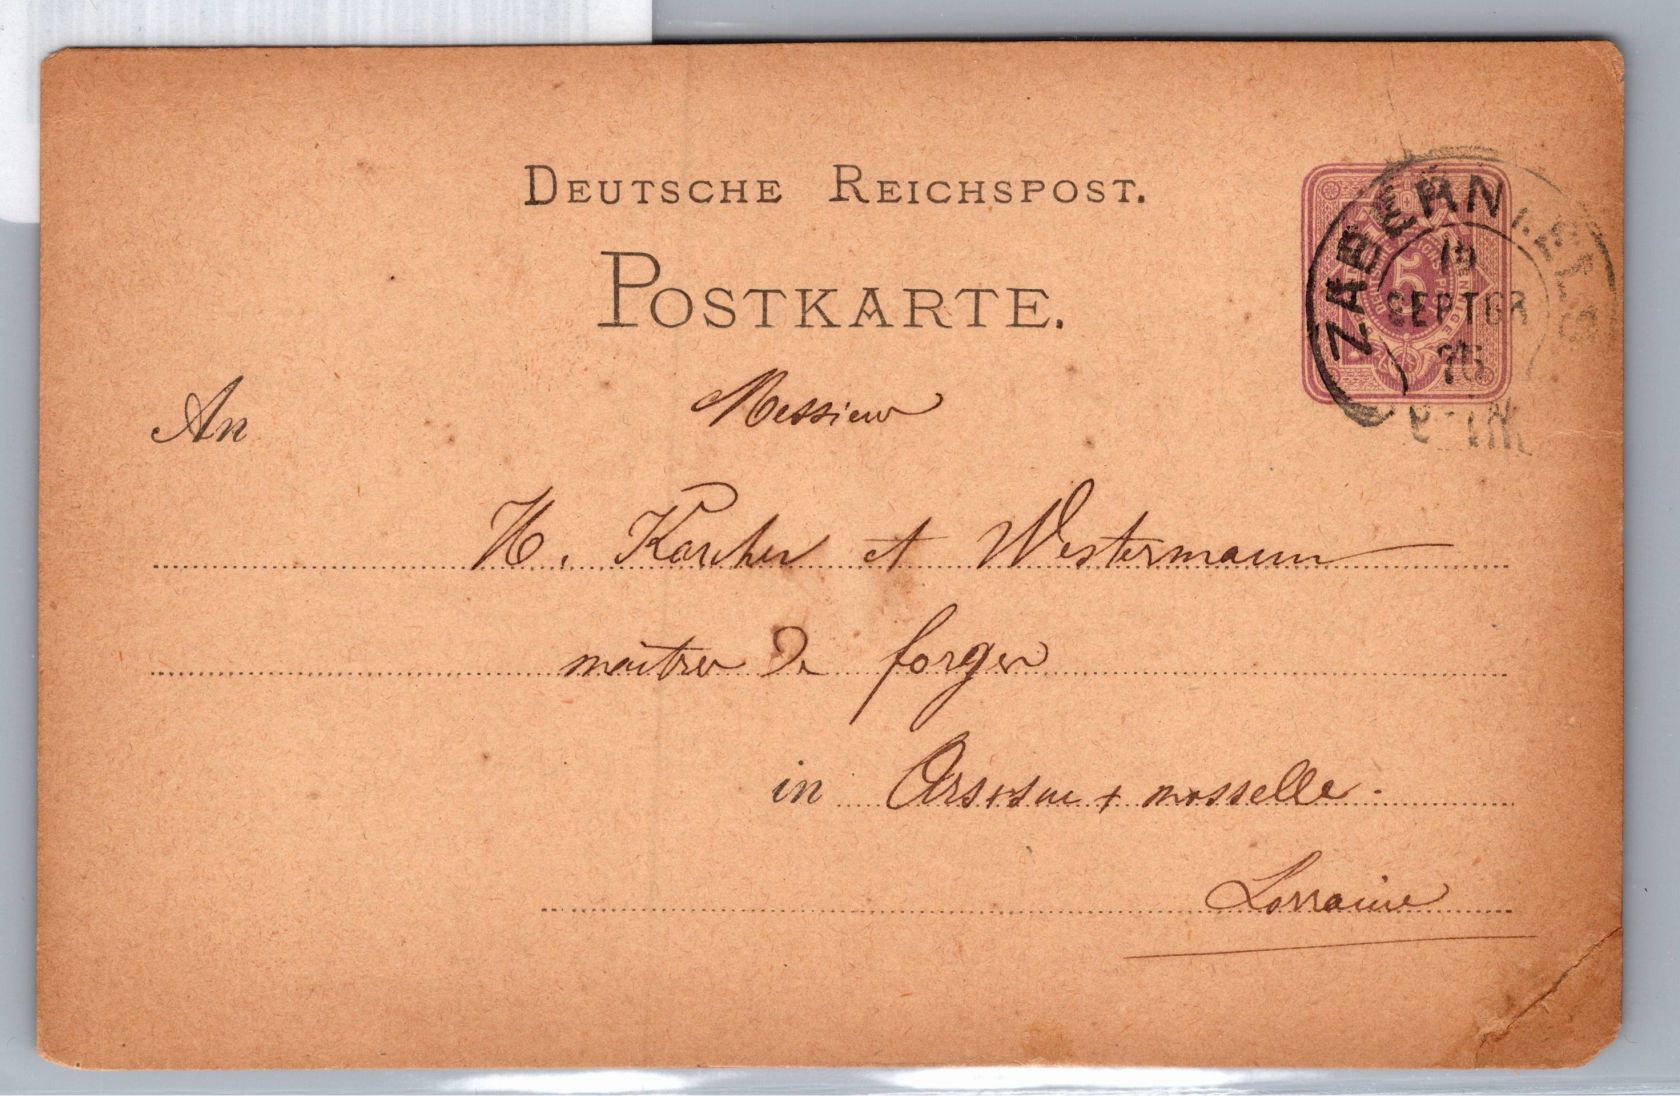 DEUTSCHE REICHSPOST.
POSTKARTE.
5
ZABERN
19
SEPTBR
76
An
Messieurs
H. Karcher et Westermann
maîtres de forges
in Arsosur + mosselle.
Lorraine